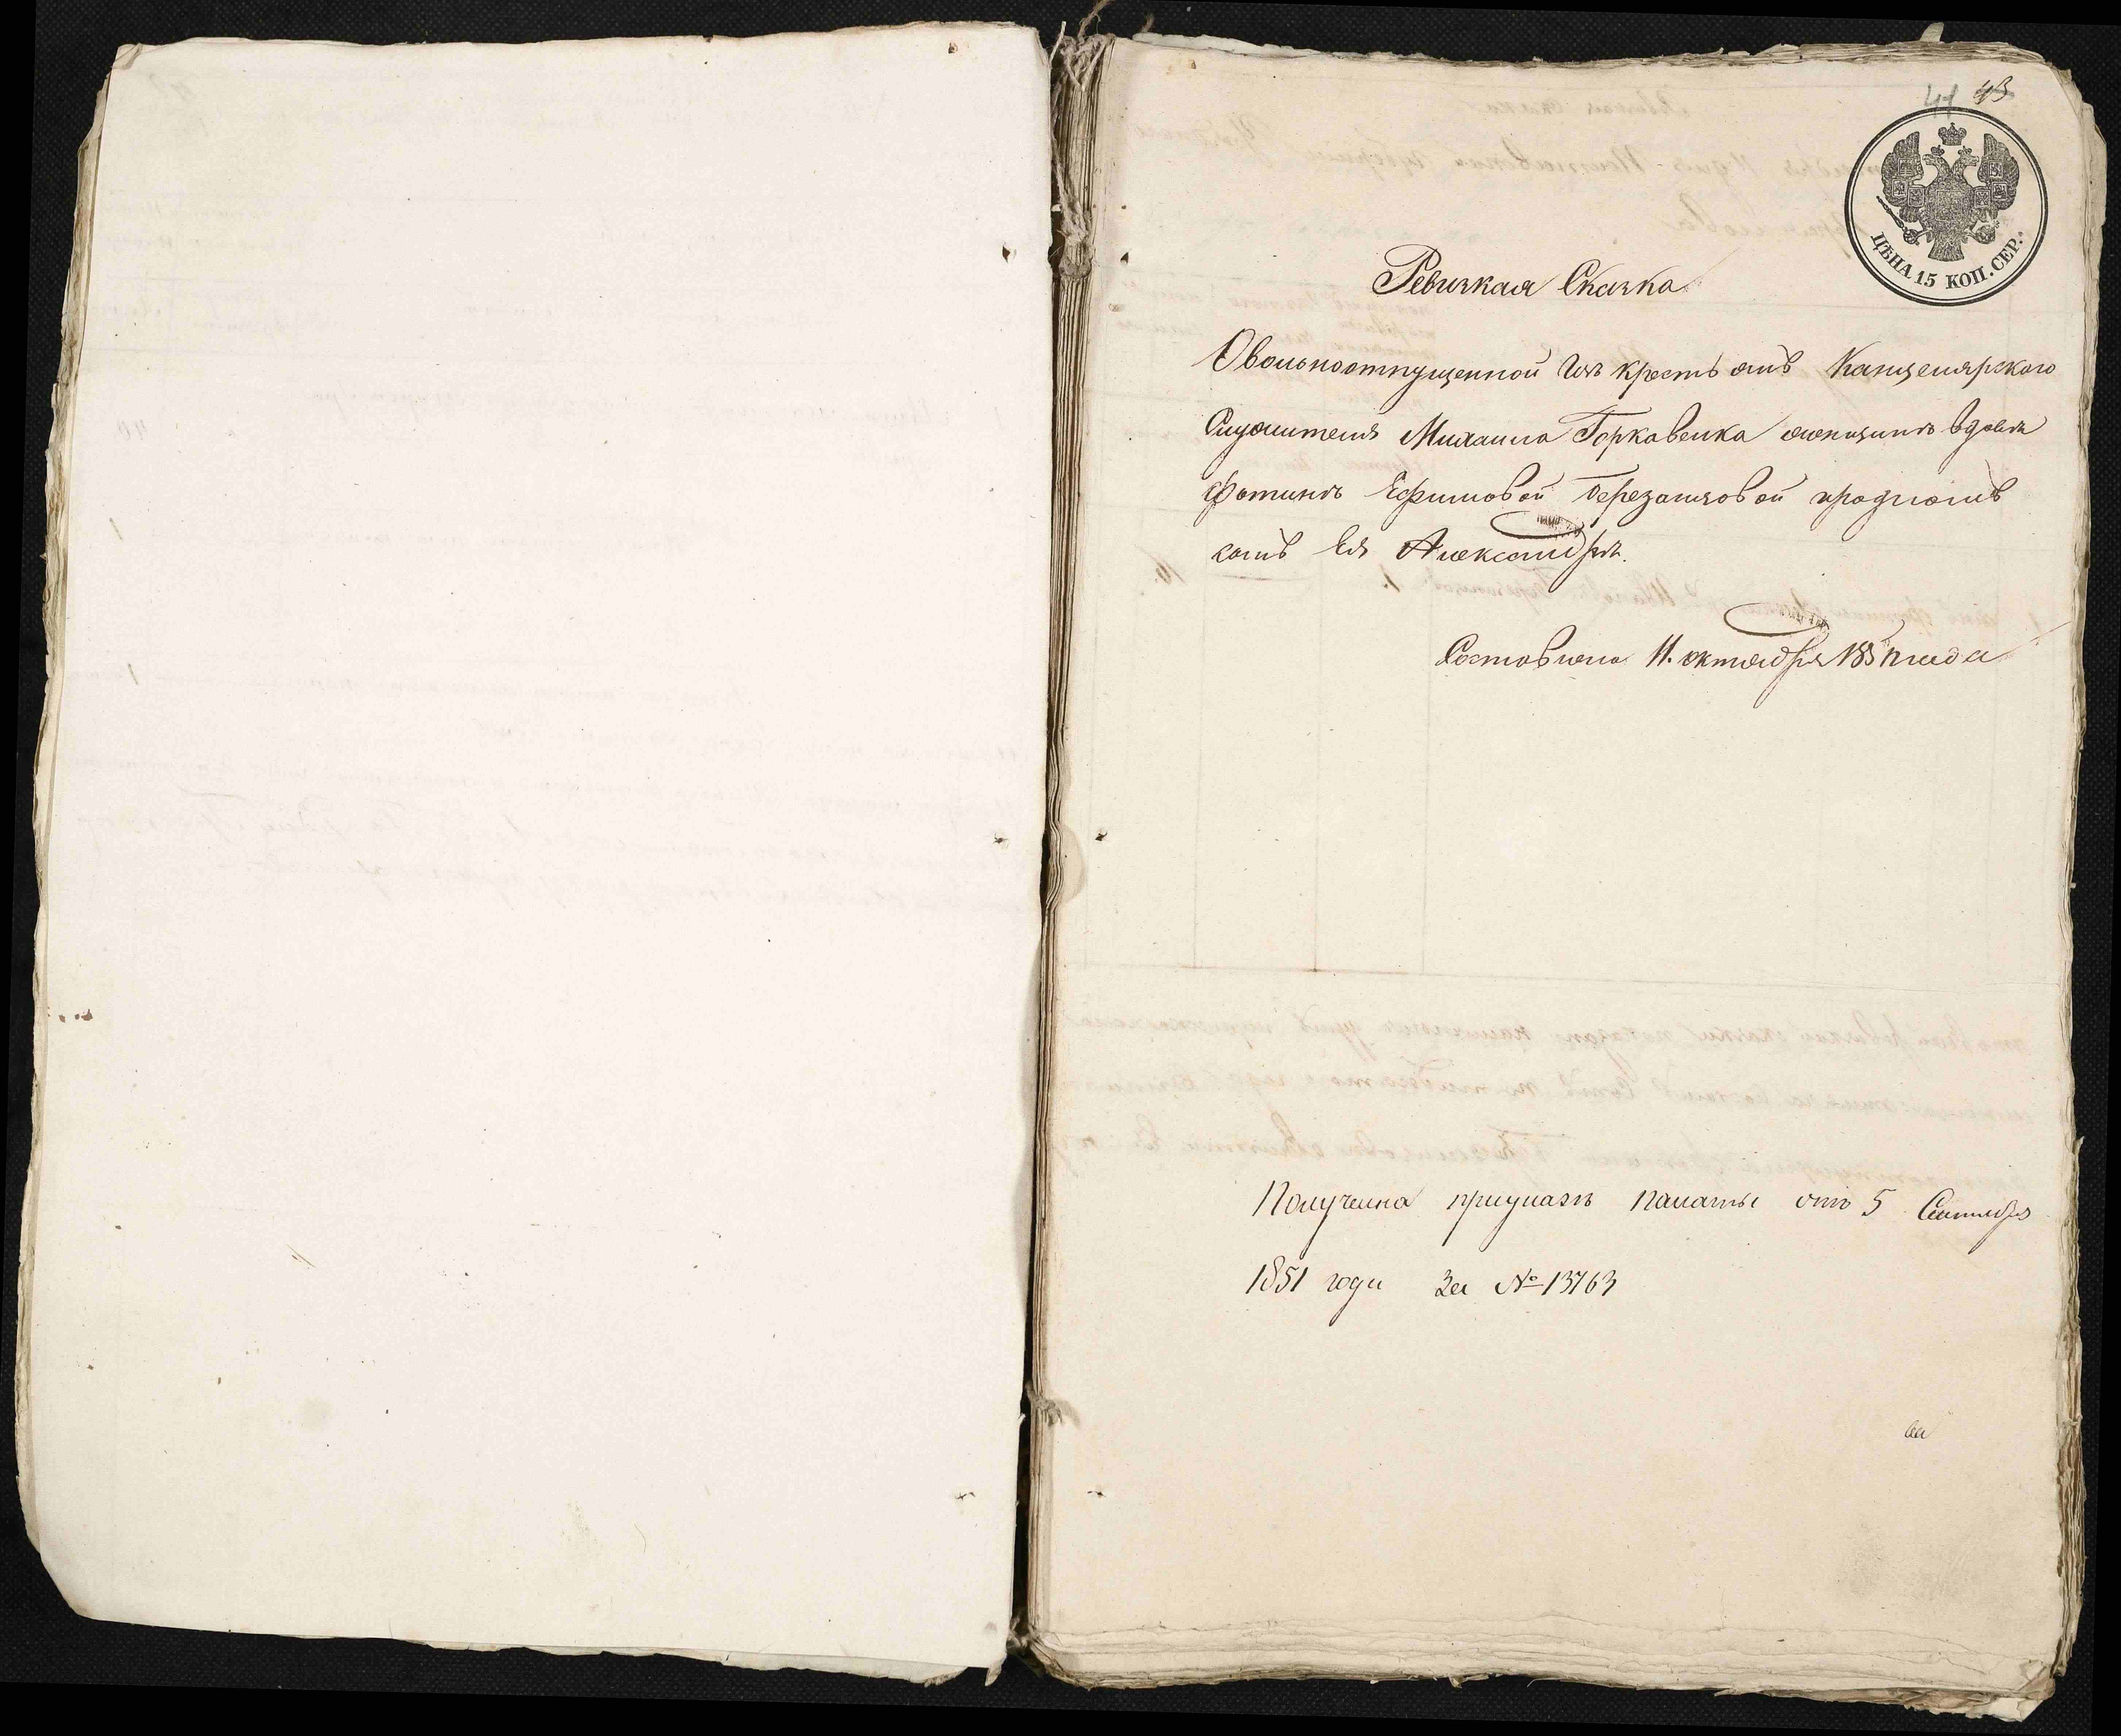 43
41
ЦѢНА 15 КОП. СЕР.
Ревизкая Сказка
О вольноотпущенной изъ крестьянъ Канцелярского
Служителя Михаила Горкавенка женщинѣ вдовѣ
Фотинѣ Ефимовой Березанзовой
Ея Александрѣ.
Составлена 11. октября 1851 года
Получена при указѣ палаты отъ 5 Сентября
1851 года За № 13763